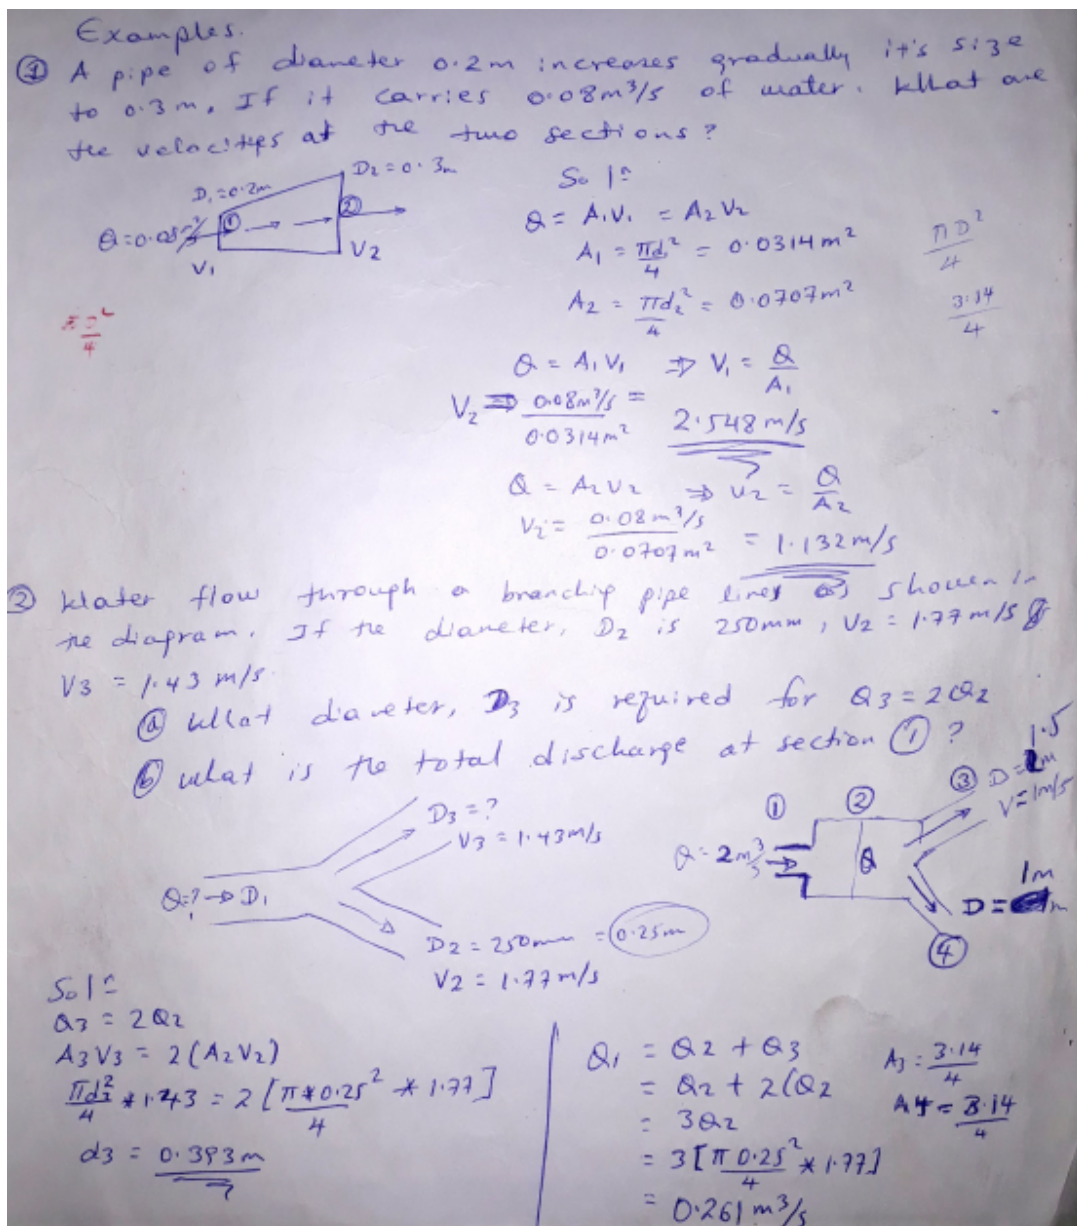 Examples.
① A pipe of diameter 0.2m increases gradually it's size
to 0.3m, If it carries 0.08m³/s of water. What are
the velocities at the two sections?
D₁=0.2m
D₂=0.3m
Q=0.08m³/s
①
②
V₁
V2
πD²
4
Soln
Q = A₁V₁ = A₂V₂
A₁ = πd₁²/4 = 0.0314m²
A₂ = πd₂²/4 = 0.0707m²
πD²
4
3.14
4
Q = A₁V₁ ⇒ V₁ = Q/A₁
V₂ ⇒ 0.08m³/s / 0.0314m² = 2.548m/s
Q = A₂V₂ ⇒ V₂ = Q/A₂
V₂ = 0.08m³/s / 0.0707m² = 1.132m/s
② Water flow through a branching pipe lines as shown in
the diagram. If the diameter, D₂ is 250mm, V₂ = 1.77m/s &
V3 = 1.43 m/s
ⓐ What diameter, D₃ is required for Q3=2Q2
ⓑ what is the total discharge at section ① ?
D3=?
V3=1.43m/s
Q=?→D₁
D2=250mm=0.25m
V2=1.77m/s
①
②
③
D=1.5m
V=1m/s
Q=2m³/s
Q
1m
D= m
④
Soln
Q3 = 2Q2
A3V3 = 2(A2V2)
πd₃²/4 * 1.43 = 2[π*0.25²/4 * 1.77]
d3 = 0.393m
Q₁ = Q2 + Q3
= Q2 + 2(Q2
= 3Q2
= 3[π0.25²/4 * 1.77]
= 0.261m³/s
A3 = 3.14/4
A4 = 3.14/4